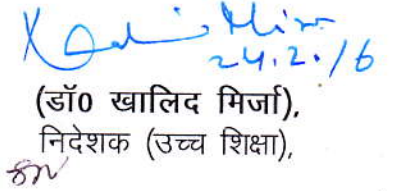 24.2.16
(डॉ0 खालिद मिर्जा),
निदेशक (उच्च शिक्षा),